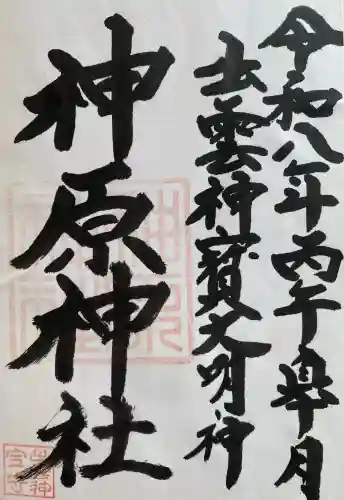 令和八年丙午皐月
出雲神寳大明神
神原神社